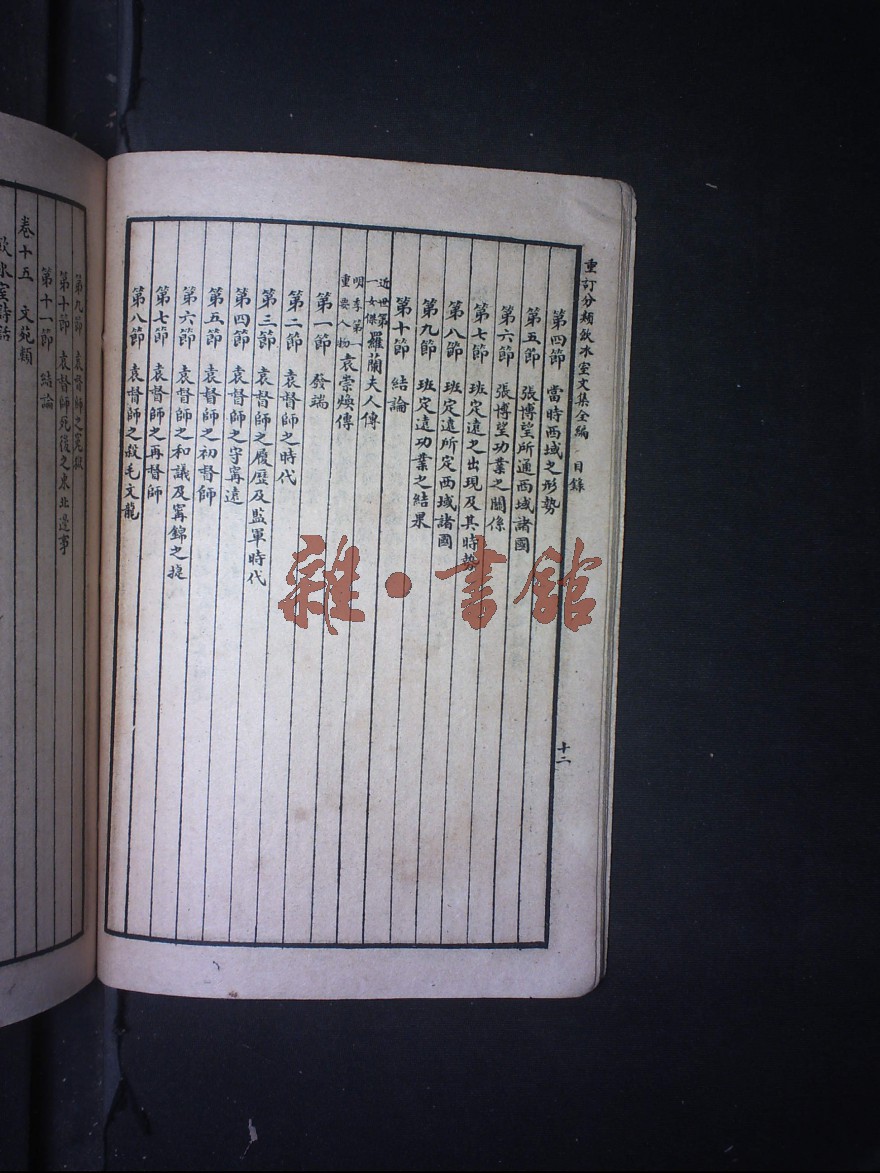 重訂分類飲冰室文集全編　目錄
十二
第四節　當時西域之形勢
第五節　張博望所通西域諸國
第六節　張博望功業之關係
第七節　班定遠之出現及其時勢
第八節　班定遠所定西域諸國
第九節　班定遠功業之結果
第十節　結論
近世第一女傑羅蘭夫人傳
明季第一重要人物袁崇煥傳
第一節　發端
第二節　袁督師之時代
第三節　袁督師之履歷及監軍時代
第四節　袁督師之守甯遠
第五節　袁督師之初督師
第六節　袁督師之和議及甯錦之捷
第七節　袁督師之再督師
第八節　袁督師之殺毛文龍
第九節　袁督師之冤獄
第十節　袁督師死後之東北邊事
第十一節　結論
卷十五　文苑類
飲冰室詩話
雜·書館